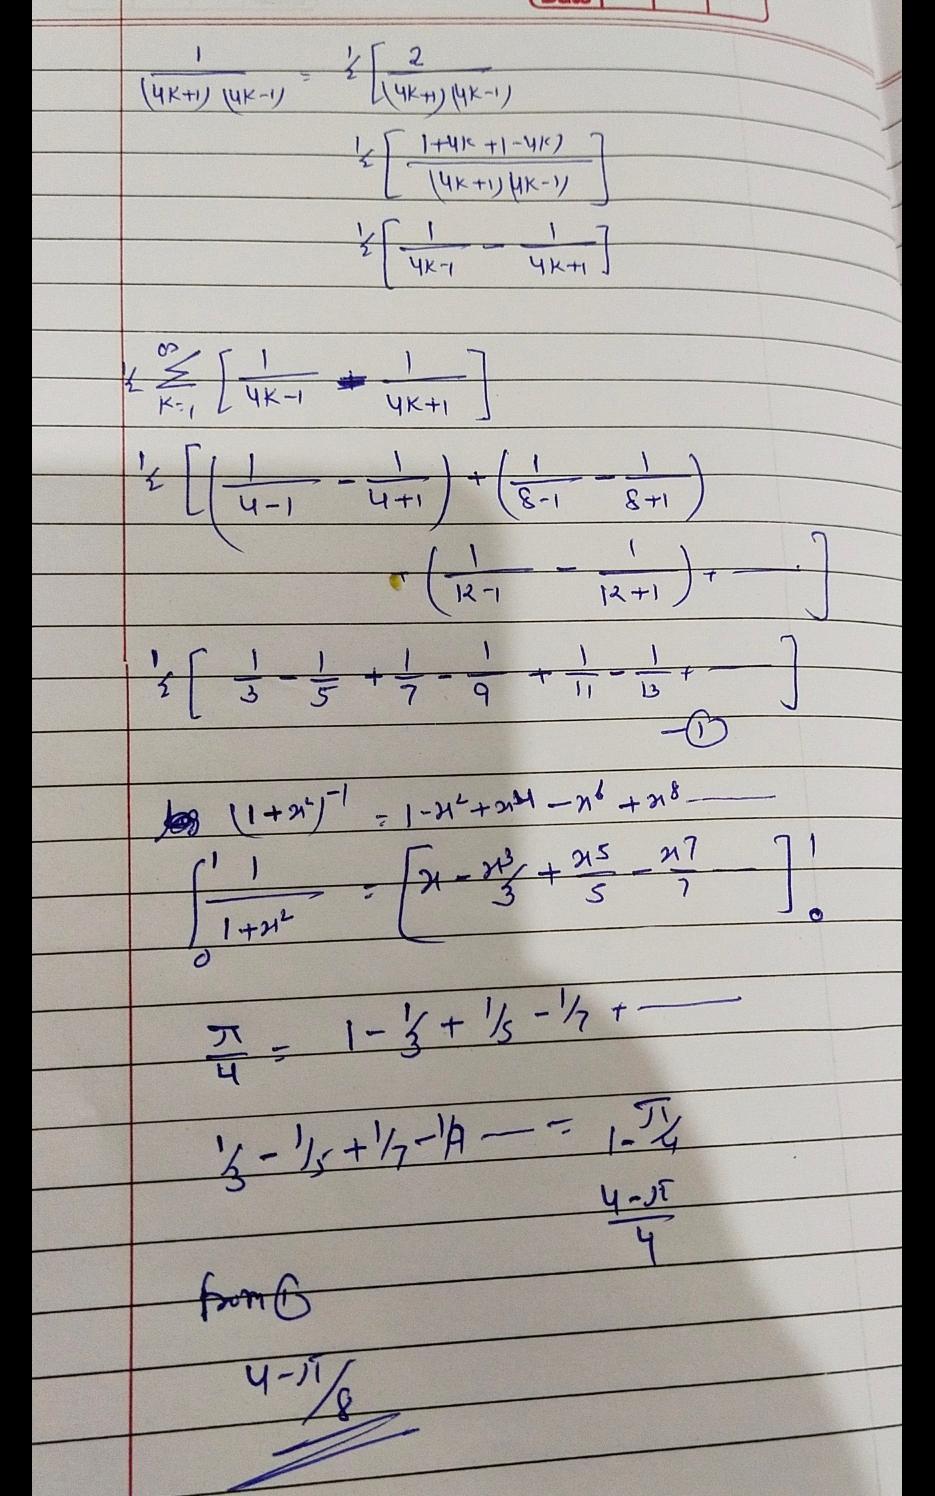 1/((4K+1)(4K-1)) = 1/2 [ 2/((4K+1)(4K-1))
1/2 [ (1+4K+1-4K)/((4K+1)(4K-1)) ]
1/2 [ 1/(4K-1) - 1/(4K+1) ]
1/2 ∞∑K=1 [ 1/(4K-1) - 1/(4K+1) ]
1/2 [ ( 1/(4-1) - 1/(4+1) ) + ( 1/(8-1) - 1/(8+1) )
( 1/(12-1) - 1/(12+1) ) + — ]
1/2 [ 1/3 - 1/5 + 1/7 - 1/9 + 1/11 - 1/13 + — ]
-①
(1+x²)⁻¹ = 1-x²+x⁴-x⁶+x⁸ —
∫₀¹ 1/(1+x²) = [ x - x³/3 + x⁵/5 - x⁷/7 — ]₀¹
π/4 = 1 - 1/3 + 1/5 - 1/7 + —
1/3 - 1/5 + 1/7 - 1/9 — = 1-π/4
(4-π)/4
from ①
4-π/8